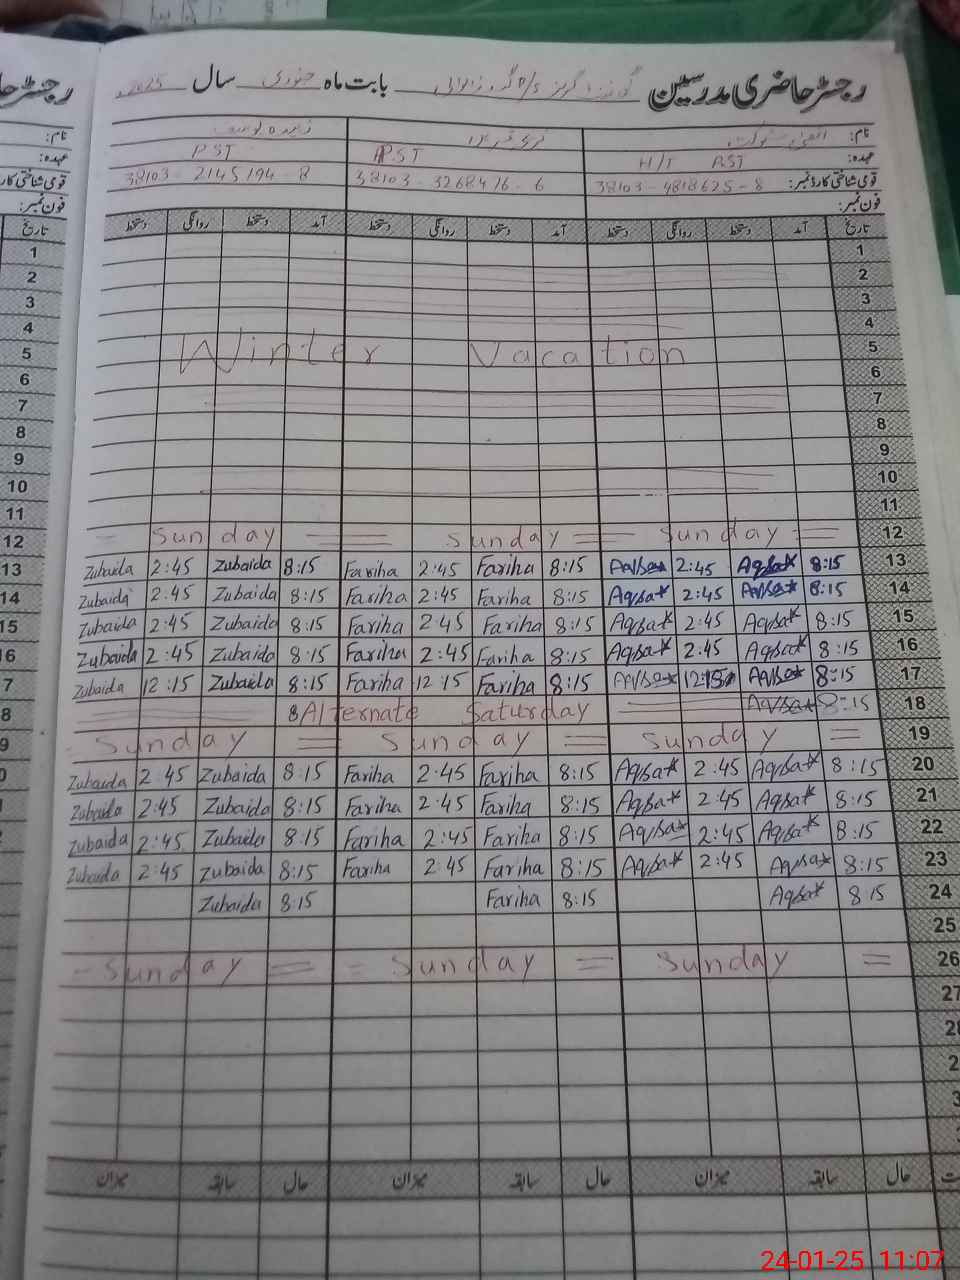 رجسٹر حاضری مدرسین گورنمنٹ گرلز بابت ماہ جنوری سال 2025
نام:
عہدہ: H/T PST PST PST
قومی شناختی کارڈ نمبر: 38103-4818625-8 38103-3268476-6 38103-2145194-8
فون نمبر:
تاریخ آمد دستخط روانگی دستخط آمد دستخط روانگی دستخط آمد دستخط روانگی دستخط
1
2
3
4
Winter Vacation 5
6
7
8
9
10
11
= Sunday = Sunday = Sunday = 12
Zubaida 2:45 Zubaida 8:15 Fariha 2:45 Fariha 8:15 Aqsa 2:45 Aqsa 8:15 13
Zubaida 2:45 Zubaida 8:15 Fariha 2:45 Fariha 8:15 Aqsa 2:45 Aqsa 8:15 14
Zubaida 2:45 Zubaida 8:15 Fariha 2:45 Fariha 8:15 Aqsa 2:45 Aqsa 8:15 15
Zubaida 2:45 Zubaida 8:15 Fariha 2:45 Fariha 8:15 Aqsa 2:45 Aqsa 8:15 16
Zubaida 12:15 Zubaida 8:15 Fariha 12:15 Fariha 8:15 Aqsa 12:15 Aqsa 8:15 17
Alternate Saturday Aqsa 8:15 18
Sunday = Sunday = Sunday = 19
Zubaida 2:45 Zubaida 8:15 Fariha 2:45 Fariha 8:15 Aqsa 2:45 Aqsa 8:15 20
Zubaida 2:45 Zubaida 8:15 Fariha 2:45 Fariha 8:15 Aqsa 2:45 Aqsa 8:15 21
Zubaida 2:45 Zubaida 8:15 Fariha 2:45 Fariha 8:15 Aqsa 2:45 Aqsa 8:15 22
Zubaida 2:45 Zubaida 8:15 Fariha 2:45 Fariha 8:15 Aqsa 2:45 Aqsa 8:15 23
Zubaida 8:15 Fariha 8:15 Aqsa 8:15 24
25
- Sunday = = Sunday = Sunday = 26
27
28
حال سابقہ میزان حال سابقہ میزان حال سابقہ میزان
24-01-25 11:07